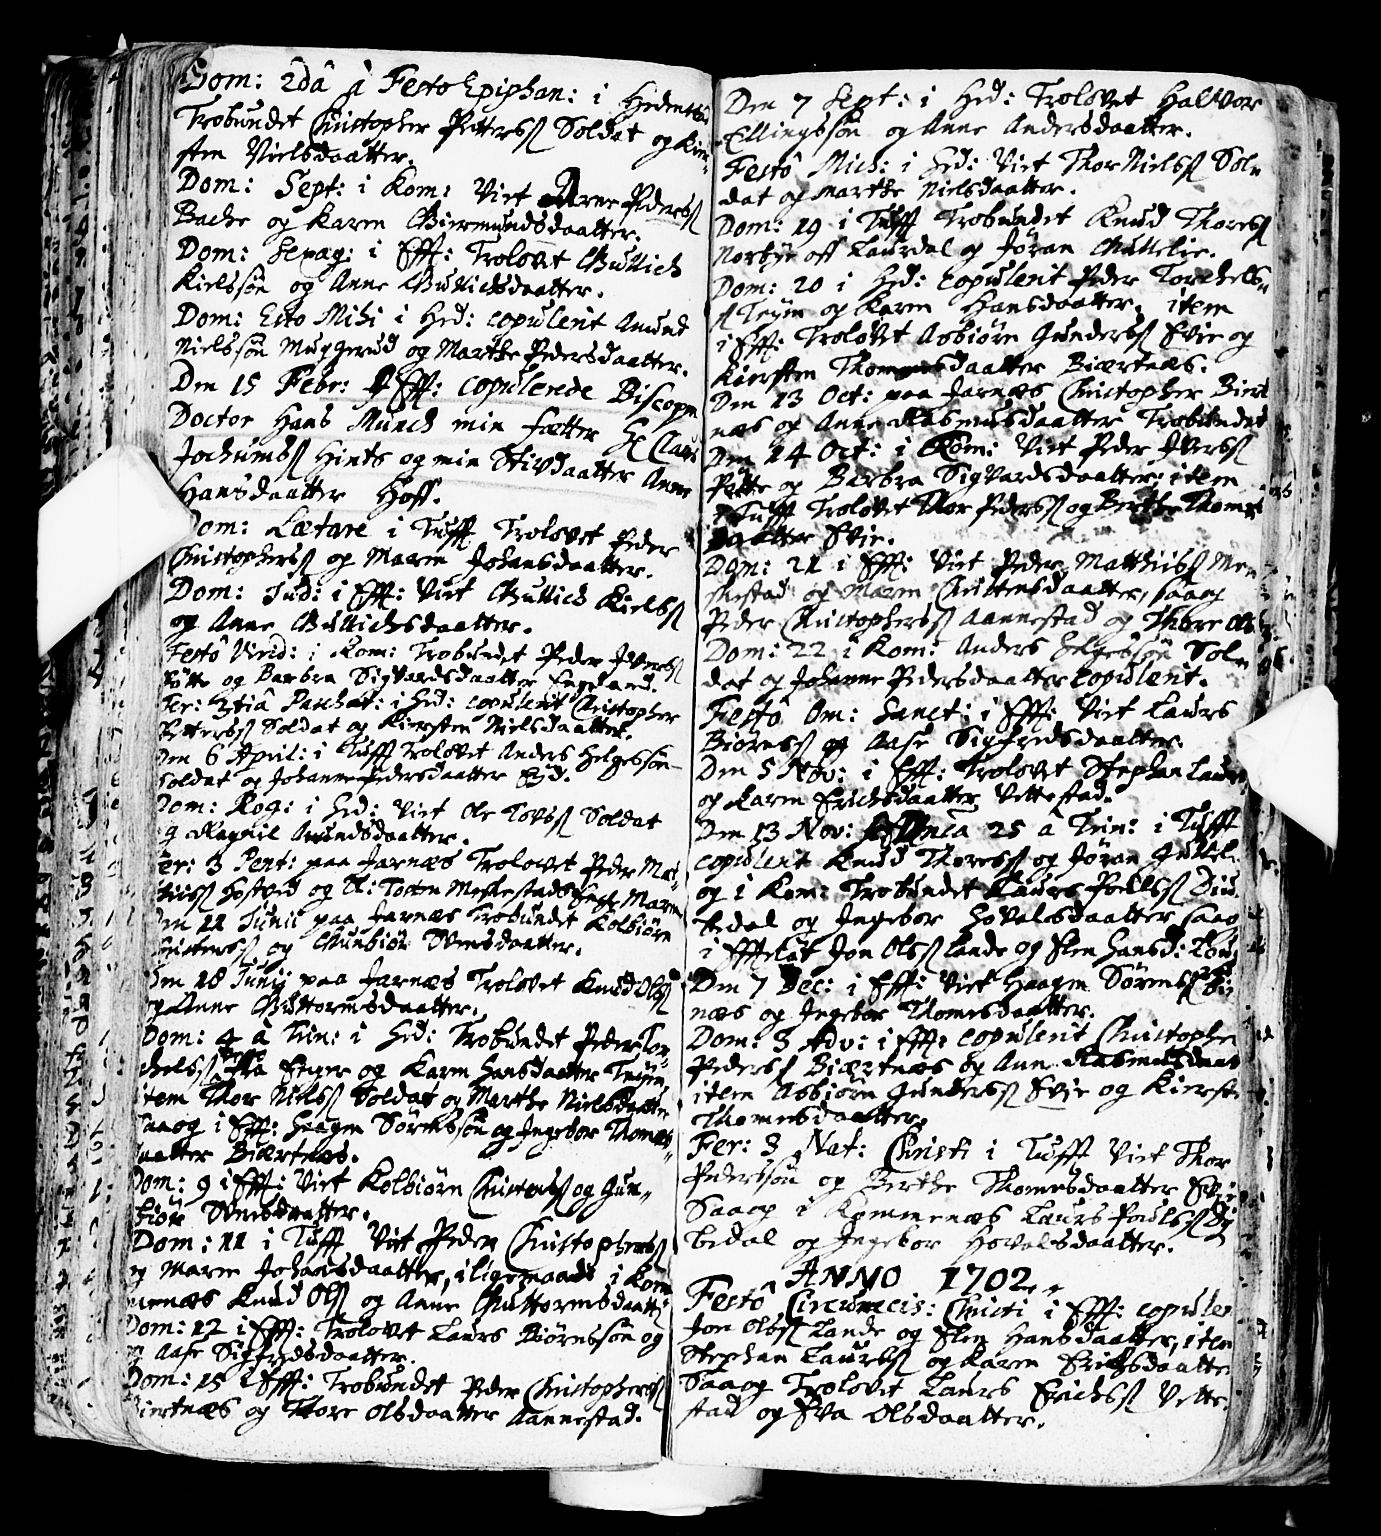 Dom: 2dâ à Festo Epiphan: i Hedenstad
Trobundet Christopher Pitterss Soldat og Kier-
sten Nielsdaatter.
Dom: Sept: i Kom: Viet Arne Pederss
Bache og Karen Giermundsdaatter.
Dom: Sexag: i Efft: Trolovet Gullich
Kielssøn og Anne Gullichsdaatter.
Dom: Esto Mihi i Hed: copulerit Amund
Nielssøn Muggerud og Marthe Pedersdaatter.
Den 15 Febr: i Efft: copulerede Biscopen
Doctor Hans Munch min fætter Hr Claus
Jochumbss Hints og min Stivdaatter Anne
Hansdaatter Hoff.
Dom: Lætare i Tufft Trolovet Peder
Christopherss og Maren Johansdaatter.
Dom: Jud: i Efft: Viet Gullich Kielss
og Anne Gullichsdaatter.
Festô Virid: i Kom: Trobundet Peder Iverss
Pitte og Barbra Sigvardsdaatter
Fer: 3tiâ Paschat: i Hed: copulerit Christopher
Pitterss Soldat og Kiersten Nielsdaatter.
Den 6 April: i Tufft Trolovet Anders Helgessøn
Soldat og Johanne Pedersdaatter
Dom: Rog: i Hed: Viet Ole Tovss Soldat
og Ragnil Amundsdaatter.
Fer: 3 Pent: paa Jarnæs Trolovet Peder Mat-
thiiss og Maren
Den 11 Junii paa Jarnæs Trobundet Kolbiørn
Christenss og Gunbiør Svensdaatter.
Den 18 Junij paa Jarnæs Trolovet Knud Olss
og Anne Guttormsdaatter.
Dom: 4 à Trin: i Hed: Trobundet Peder Tor-
chelss og Karen Hansdaatter Teyen,
item Thor Nielss Soldat og Marthe Nielsdaatter
Saaog i Efft: Haagen Sørenssøn og Ingebor Thomes-
daatter Biærtnæs.
Dom: 9 i Efft: Viet Kolbiørn Christenss og Gun-
biør Svensdaatter.
Dom: 11 i Tufft Viet Peder Christopherss
og Maren Johansdaatter, iligemaade i Kom-
mernæs Knud Olss og Anne Guttormsdaatter
Dom: 12 i Efft: Trolovet Laurs Biørnssøn og
og Aase Sigfredsdaatter.
Dom: 15 i Efft: Trobundet Peder Christopherss
Biertnæs og Thore Olsdaatter Aannestad.
Den 7 Sept: i Hed: Trolovet Halvor
Ellingssøn og Anne Andersdaatter.
Festô Mich: i Hed: Viet Thor Nielss Sol-
dat og Marthe Nielsdaatter.
Dom: 19 i Tufft Trobundet Knud Thoress
Norbye off Laurdal og Jøran Gullelie.
Dom: 20 i Hed: copulerit Peder Torchels-
s Teyen og Karen Hansdaatter, item
i Efft: Trolovet Asbiørn Gunderss Evie og
Kiersten Thomesdaatter Biærtnæs.
Den 13 Oct: paa Jarnæs Christopher Biert-
næs og Anne Rasmusdaatter Trobundet
Den 14 Oct: i Kom: Viet Peder Iverss
Pitte og Barbra Sigvardsdaatter: item
i Tufft Trolovet Thor Pederss og Berthe Thomes
daatter Evie.
Dom: 21 i Efft: Viet Peder Matthiiss Me-
chestad og Maren Christensdaatter, saaog
Peder Christopherss Aannestad og Thore Ols
Dom: 22 i Kom: Anders Helgessøn Sol-
dat og Johanne Pedersdaatter copulerit.
Festô Om: Sanct: i Efft: Viet Laurs
Biørnss og Aase Sigfredsdaatter.
Den 5 Nov: i Efft: Trolovet Stephan Laurss
og Karen Erichsdaatter Vettestad.
Den 13 Nov: 25 à Trin: i Tufft
copulerit Knud Thoress og Jøran Gullel.
og i Kom: Trobundet Laurs Poulss
bedal og Ingebor Hovalsdaatter, saaog
i Efftelöt Jon Olss Lande og Elen Hansd:
Den 7 Dec: i Efft: Viet Haagen Sørenss
næs og Ingebor Thomesdaatter.
Dom: 3 Adv: i Efft: copulerit Christopher
Pederss Biærtnæs og Anne Rasmusdaat
item Asbiørn Gunderss Evje og Kierste
Thomesdaatter.
Fer: 3 Nat: Christi i Tufft Viet Thor
Pederssøn og Berthe Thomesdaatter Evje
Saaog i Kommernæs Laurs Poulss Dy
bedal og Ingebor Hovalsdaatter.
ANNO 1702.
Festô Circumcis: Christi i Efft: copuler
Jon Olss Lande og Elen Hansdaatter, item
Stephan Laurss og Karen Erichsdaatter
Saaog Trolovet Laurs Erichss Vette-
stad og Eva Olsdaatter.